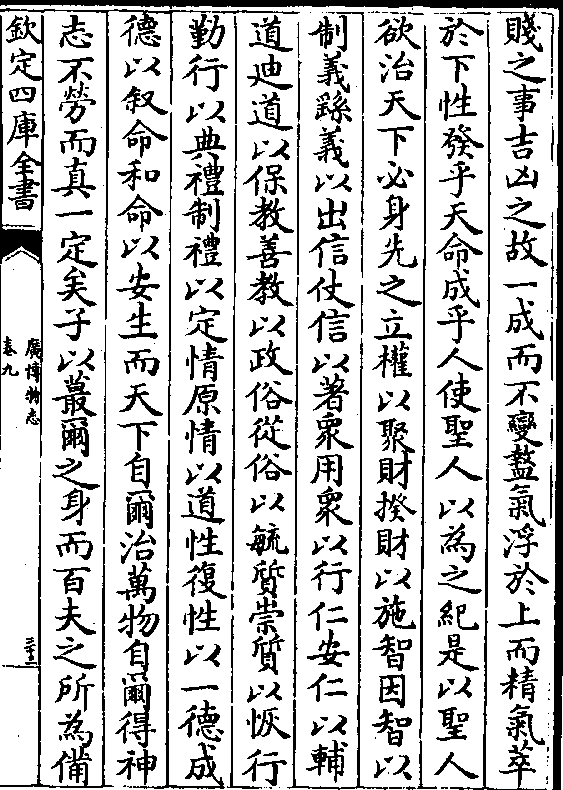 賤之事吉凶之故一成而不變盩氣浮於上而精氣萃
於下性發乎天命成乎人使聖人以為之紀是以聖人
欲治天下必身先之立權以聚財揆財以施智因智以
制義繇義以出信仗信以著衆用衆以行仁安仁以輔
道迪道以保教善教以政俗從俗以毓質崇質以恢行
勤行以典禮制禮以定情原情以道性復性以一德成
德以叙命和命以安生而天下自爾治萬物自爾得神
志不勞而真一定矣予以蕞爾之身而百夫之所為備
欽定四庫全書
廣博物志
卷九
三十二